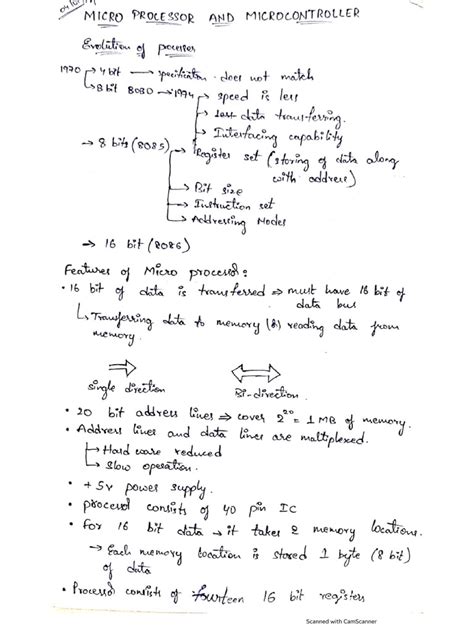 MICRO PROCESSOR AND MICROCONTROLLER
Evolution of processor
1970 → 4 bit → specification does not match
→ 8 bit 8080 → 1974 → speed is less
→ less data transferring.
→ Interfacing capability
→ 8 bits (8085) → Register set (storing of data along
with address)
→ Bit size
→ Instruction set
→ Addressing Modes
→ 16 bit (8086)
Features of Micro processor:
• 16 bit of data is transferred ⇒ must have 16 bit of
data bus
↳ Transferring data to memory (or) reading data from
memory.
single direction Bi-direction
• 20 bit address lines ⇒ cover 2^20 = 1 MB of memory.
• Address lines and data lines are multiplexed.
→ Hardware reduced
→ Slow operation.
• +5v power supply.
• processor consists of 40 pin IC
• For 16 bit data → it takes 2 memory locations.
→ Each memory location is stored 1 byte (8 bit)
of data
• Processor consists of fourteen 16 bit registers
Scanned with CamScanner